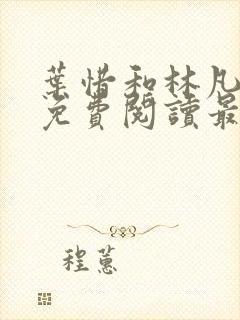 葉惜和林凡
免費閱讀最
程蕙